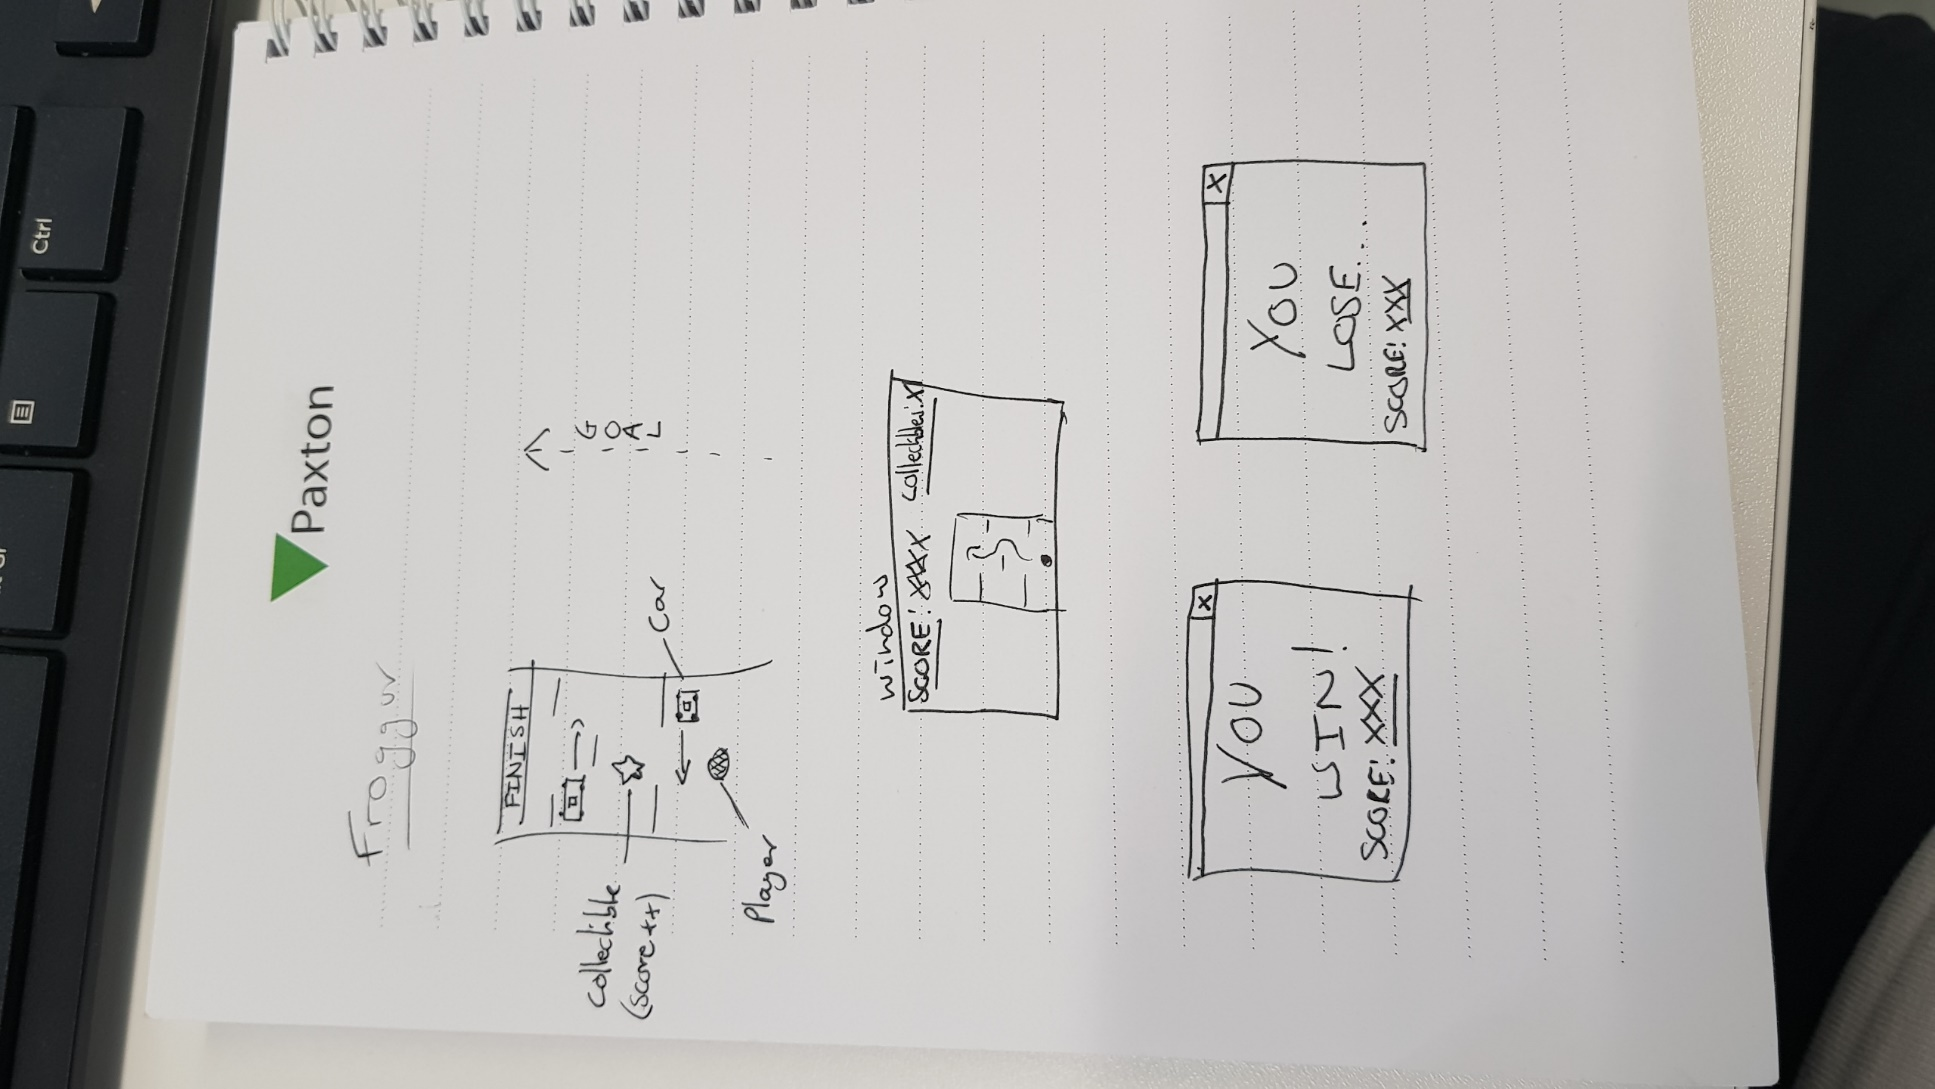 Paxton
Froggur
FINISH
G
O
A
L
Car
Collectible
(score++)
Player
Window
SCORE: XXX Collectibles: X
X
YOU
WIN!
SCORE: XXX
X
YOU
LOSE...
SCORE: XXX
Ctrl